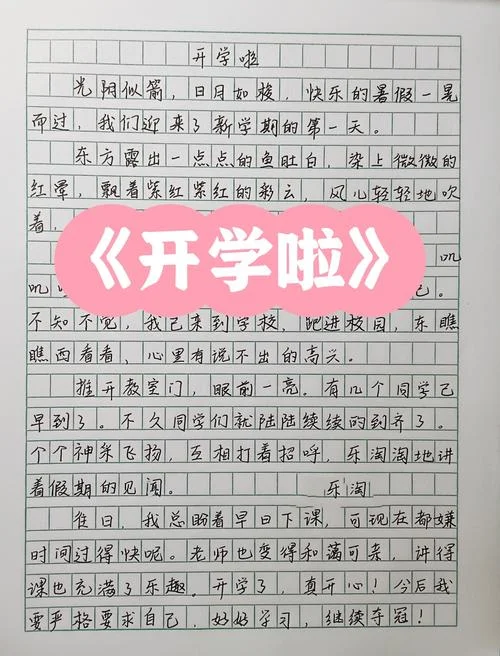 开学啦
光阴似箭，日月如梭，快乐的暑假一晃
而过，我们迎来了新学期的第一天。
东方露出一点点的鱼肚白，染上微微的
红晕，飘着紫红紫红的彩云，风儿轻轻地吹
着，
《开学啦》
叽
叽
不知不觉，我已来到学校，跑进校园，东瞧
瞧西看看，心里有说不出的高兴。
推开教室门，眼前一亮。有几个同学已
早到了。不久同学们就陆陆续续的到齐了。
个个神采飞扬，互相打着招呼，乐淘淘地讲
着假期的见闻。 乐淘
往日，我总盼着早日下课，可现在都嫌
时间过得快呢。老师也变得和蔼可亲，讲得
课也充满了乐趣。开学了，真开心！今后我
要严格要求自己，好好学习，继续夺冠！